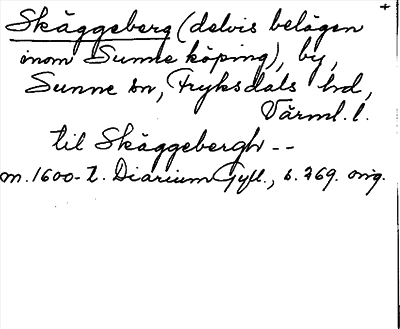 Skäggeberg (delvis belägen +
inom Sunne köping), by,
Sunne sn, Fryksdals hd,
Värml. l.
til Skäggebergh --
m. 1600-t. Diarium Gyll., s. 769. orig.